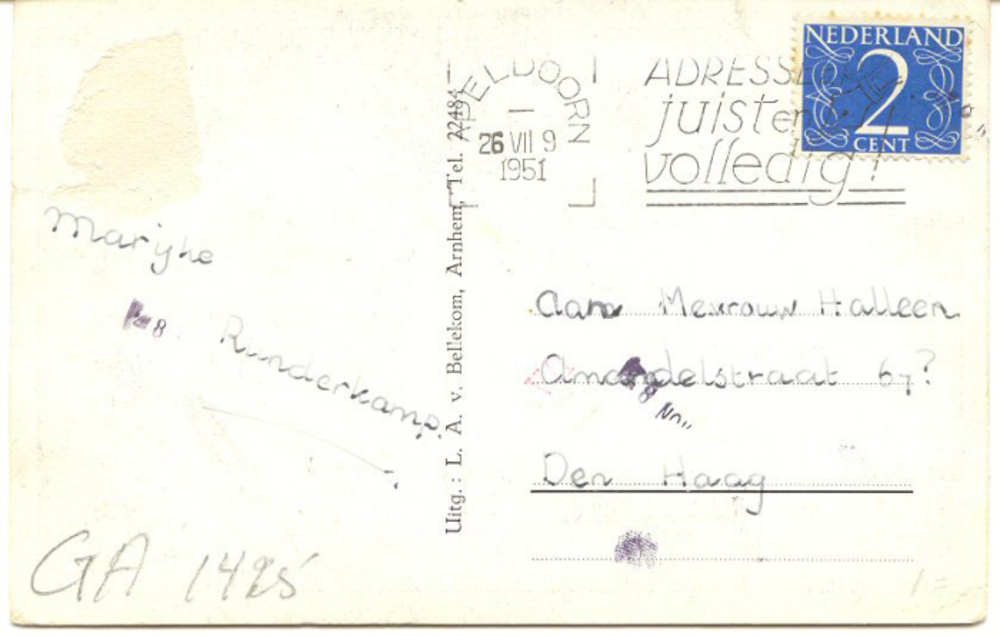 Marijke
Runderkamp.
GA 1425
Uitg.: L. A. v. Bellekom, Arnhem, Tel. 22484
APELDOORN
26 VII 9
1951
ADRESSEER
juist en
volledig!
NEDERLAND
2
CENT
Aan Mevrouw Halleen
Amandelstraat 67?
Den Haag